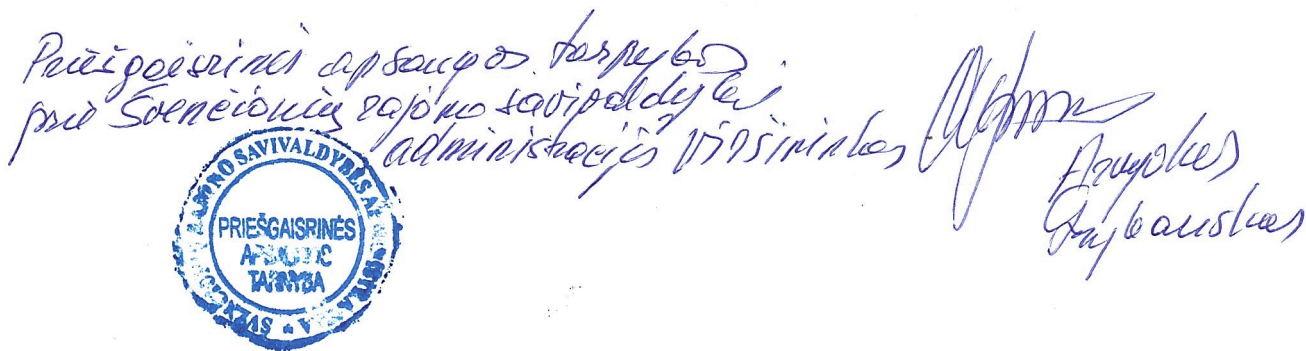 Priešgaisrinės apsaugos tarnybos
prie Švenčionių rajono savivaldybės
administracijos viršininkas
Arvydas
ŠVENČIONIŲ RAJONO SAVIVALDYBĖS ADMINISTRACIJA
PRIEŠGAISRINĖS
APSAUGOS
TARNYBA